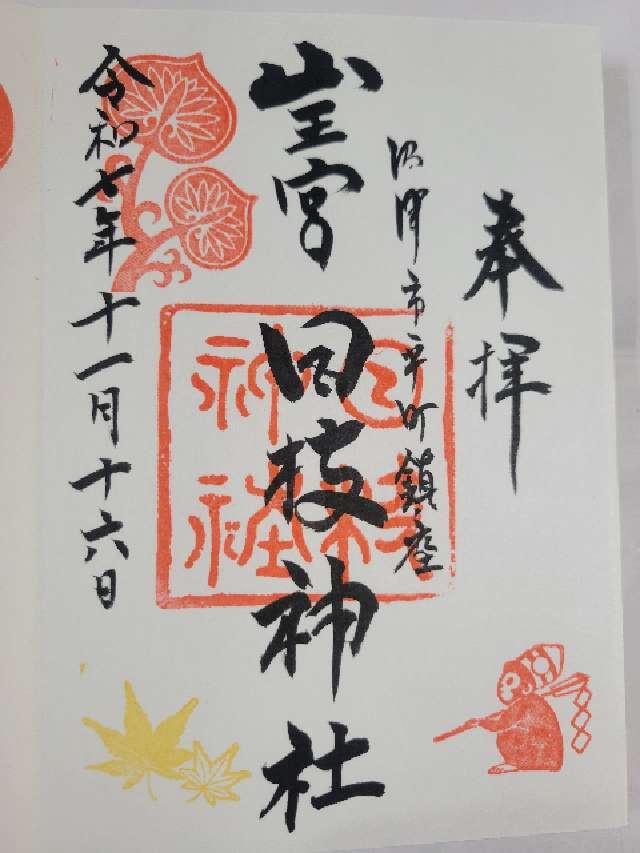 奉拝
沼津市平町鎮座
山王宮 日枝神社
日枝
神社
令和七年十一月十六日